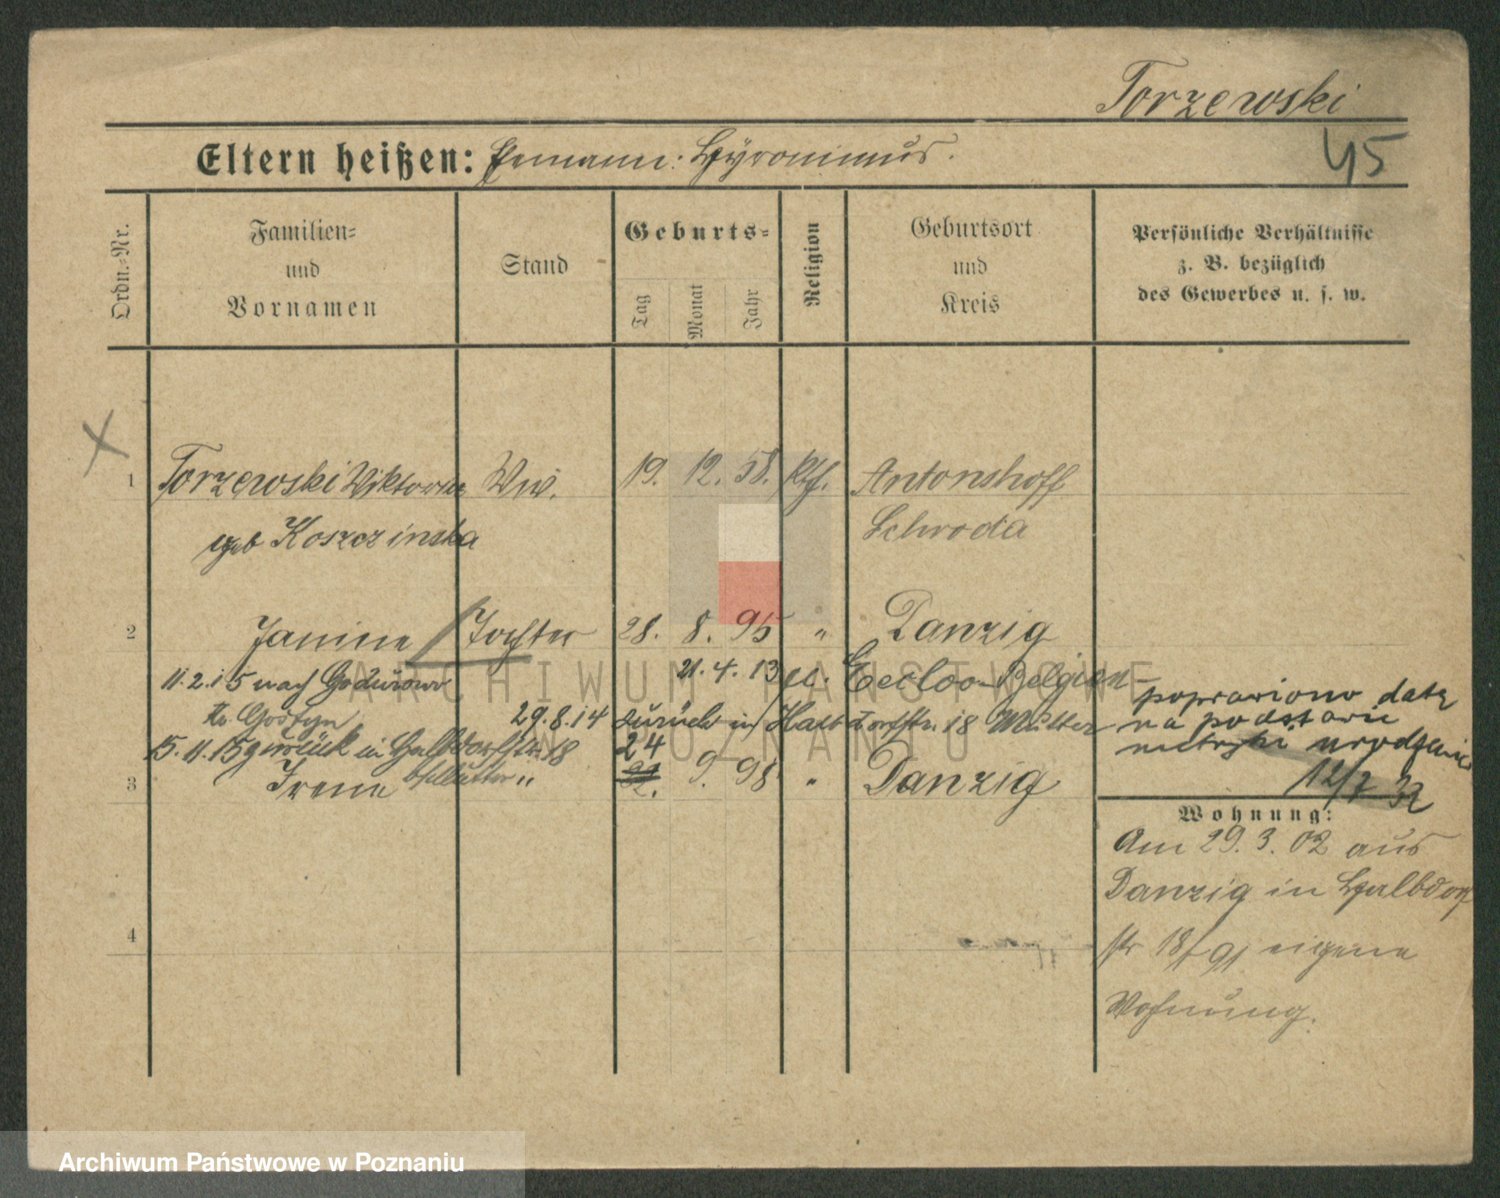 Torzewski
Eltern heißen: Ehemann: Hyronimus.
45
Ordn.-Nr.
Familien-
und
Vornamen
Stand
Geburts-
Tag
Monat
Jahr
Religion
Geburtsort
und
Kreis
Persönliche Verhältnisse
z. B. bezüglich
des Gewerbes u. s. w.
1 Torzewski Viktoria Wiw. 19. 12. 58. kth. Antonshoff
geb Koszczinska Schroda
2 Janine Tochter 28. 8. 95 " Danzig
11.2.15 nach Godurowo 21. 4. 13 Eecloo-Belgien
Kr. Gostyn 29.8.14 zurück in Halbdorfstr. 18 Mutter
15. 11. 15 zurück in Halbdorfstr. 18
b/Mutter
24
3 Irene " 9. 98 " Danzig
poprawiono datę
na podstawie
metryki urodzenia
12/7 32
Wohnung:
Am 29. 3. 02 aus
Danzig in Halbdorf
str 18/ eigene
Wohnung.
4
ARCHIWUM PAŃSTWOWE
W POZNANIU
Archiwum Państwowe w Poznaniu